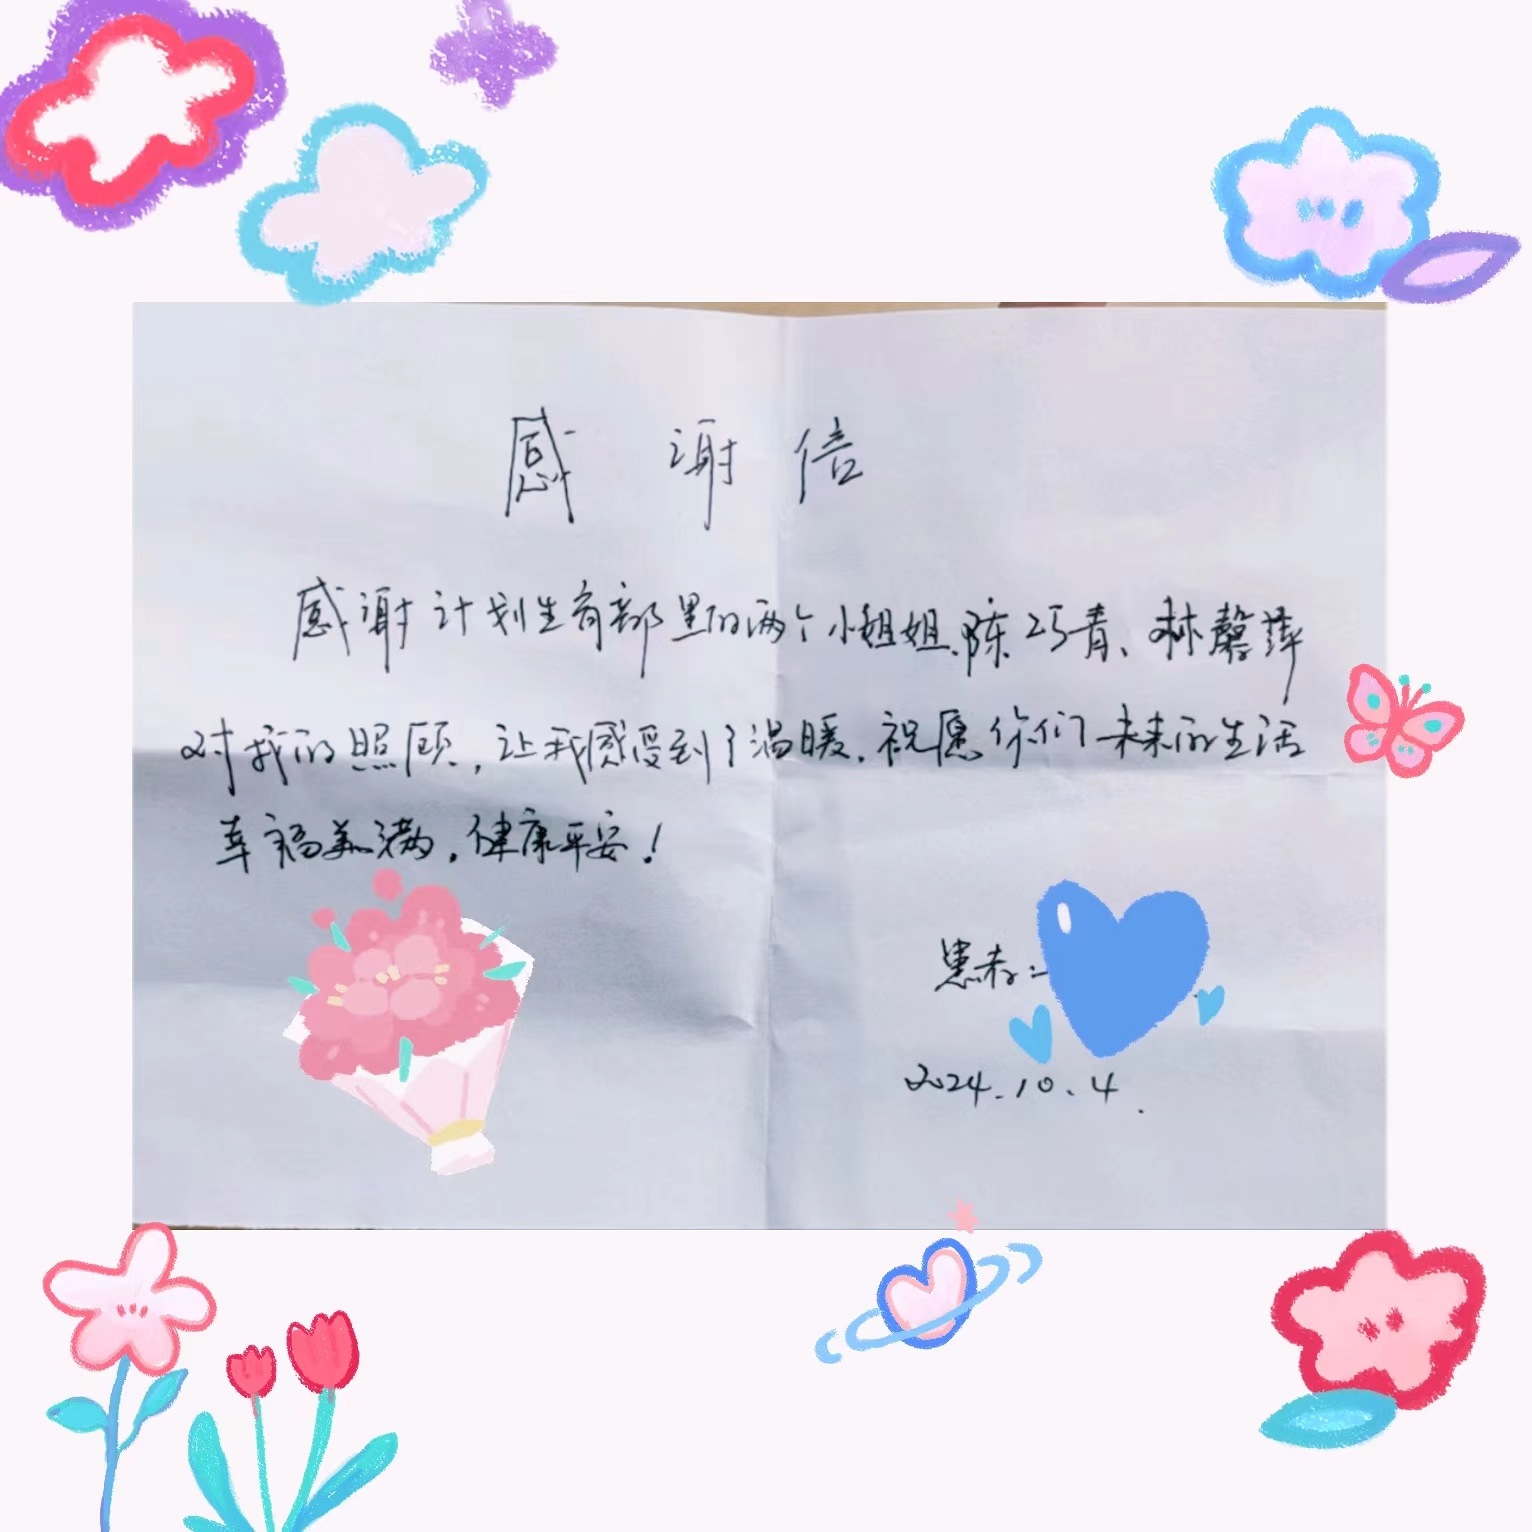 感谢信
感谢计划生育部里的两个小姐姐、陈巧青、林馨萍
对我的照顾，让我感受到了温暖，祝愿你们未来的生活
幸福美满，健康平安！
患者：
2024.10.4.